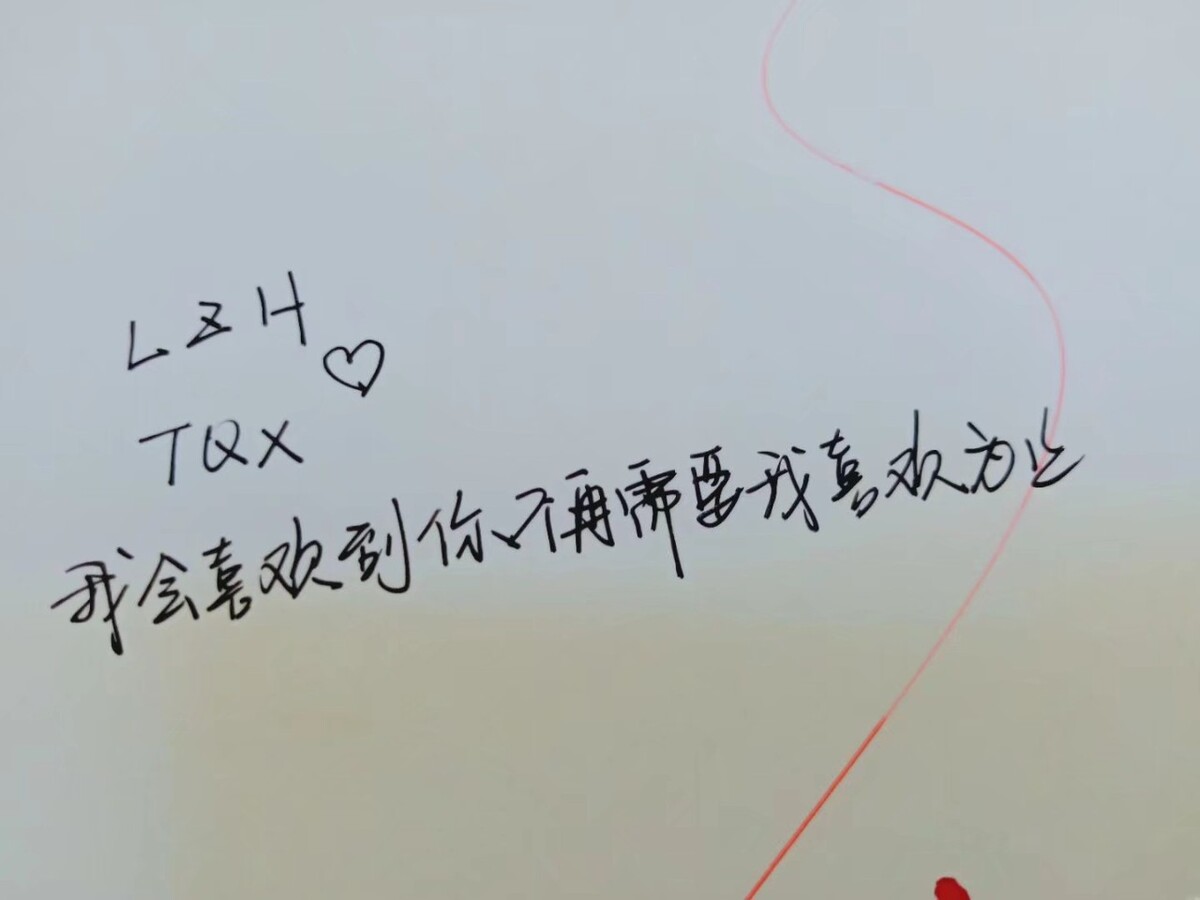 LZH
♡
TQX
我会喜欢到你不再需要我喜欢为止